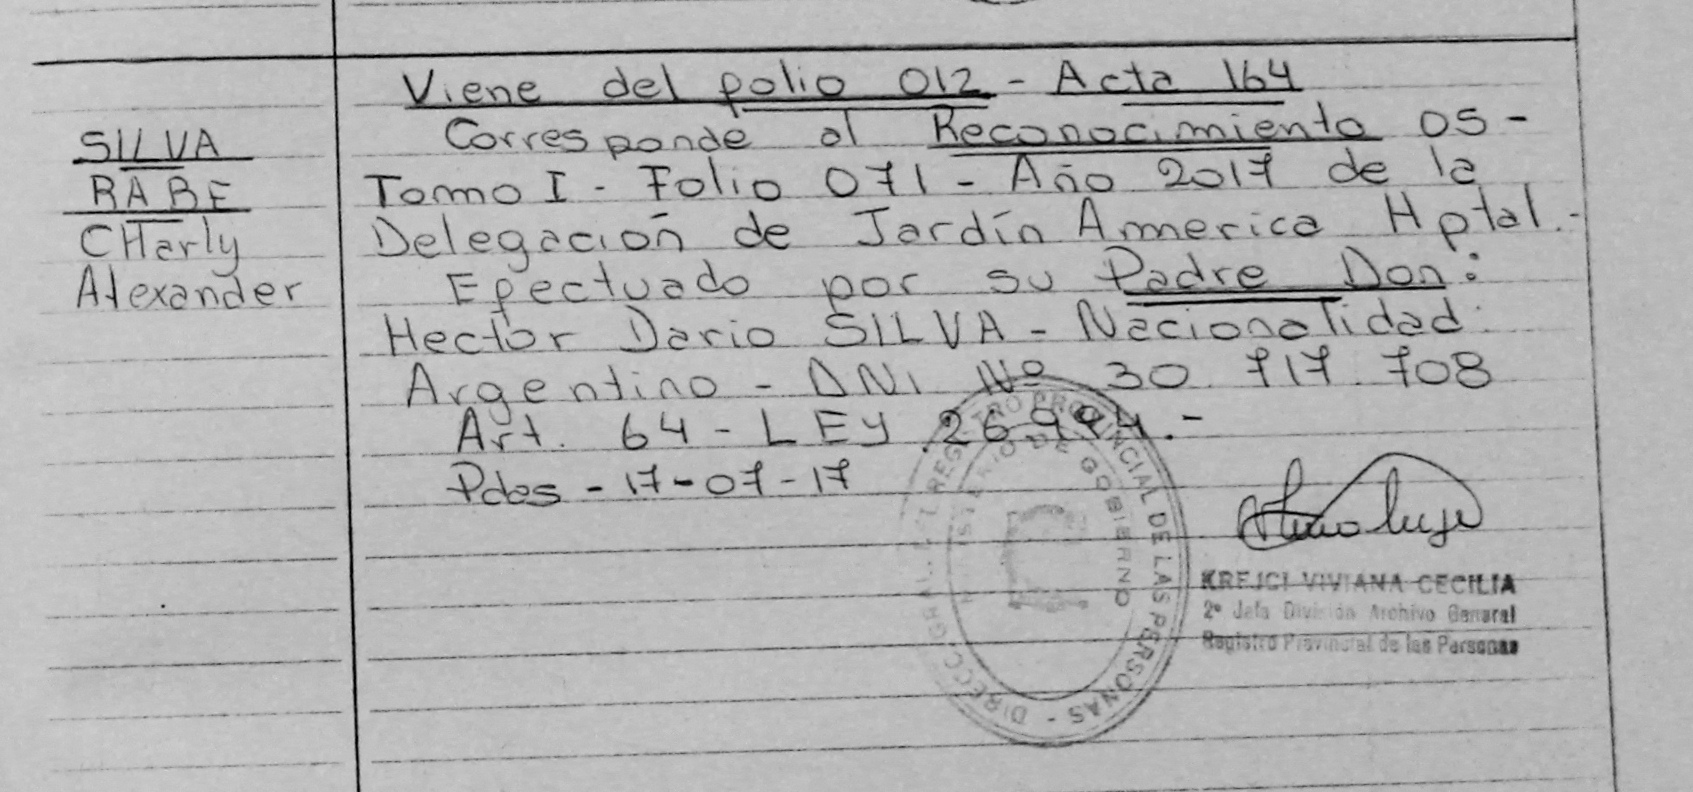 SILVA
RABE
CHarly
Alexander
Viene del folio 012 - Acta 164
Corresponde al Reconocimiento 05 -
Tomo I - Folio 071 - Año 2017 de la
Delegación de Jardín Ammerica Hptal.-
Efectuado por su Padre Don:
Hector Dario SILVA - Nacionalidad
Argentino - DNI Nº 30.717.708
Art. 64 - LEY 26.994.-
Pdas - 17-07-17
DIRECC. GRAL. DEL REGISTRO PROVINCIAL DE LAS PERSONAS -
MINISTERIO DE GOBIERNO
KREJCI VIVIANA CECILIA
2º Jefa División Archivo General
Registro Provincial de las Personas